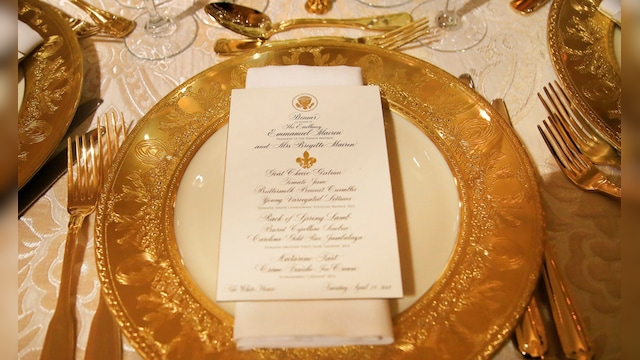 Dinner
His Excellency
Emmanuel Macron
and Mrs. Brigitte Macron
Goat Cheese Gateau
Tomato Jam
Buttermilk Biscuit Crumbles
Young Variegated Lettuces
Rack of Spring Lamb
Burnt Cipollini Soubise
Carolina Gold Rice Jambalaya
Nectarine Tart
Crème Fraîche Ice Cream
The White House
Tuesday, April 24, 2018